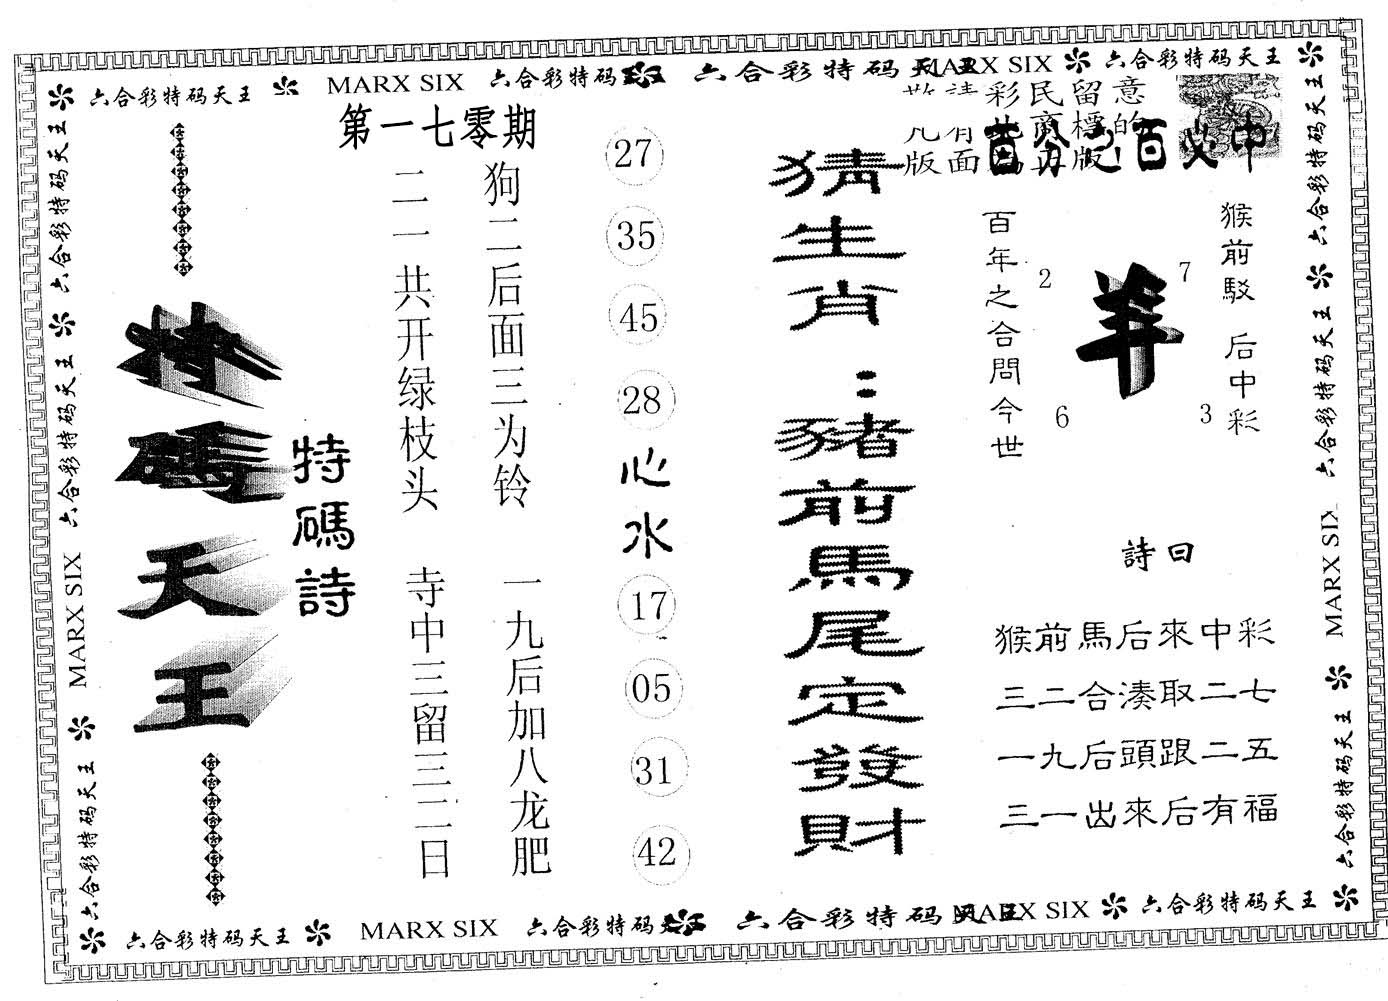 六合彩特码天王 MARX SIX 六合彩特码天王 六合彩特码天王 MARX SIX 六合彩特码天王
六合彩特码天王
六合彩特码天王
MARX SIX
六合彩特码天王
特碼天王
特碼詩
第一七零期
二一共开绿枝头 寺中三留三二日
狗二后面三为铃 一九后加八龙肥
27
35
45
28
心水
17
05
31
42
猜生肖：豬前馬尾定發財
彩民留意
版面
百必中
百年之合問今世
2
7
羊
6
3
猴前駁 后中彩
詩曰
猴前馬后來中彩
三二合湊取二七
一九后頭跟二五
三一出來后有福
六合彩特码天王
六合彩特码天王
MARX SIX
六合彩特码天王
六合彩特码天王 MARX SIX 六合彩特码天王 六合彩特码天王 MARX SIX 六合彩特码天王